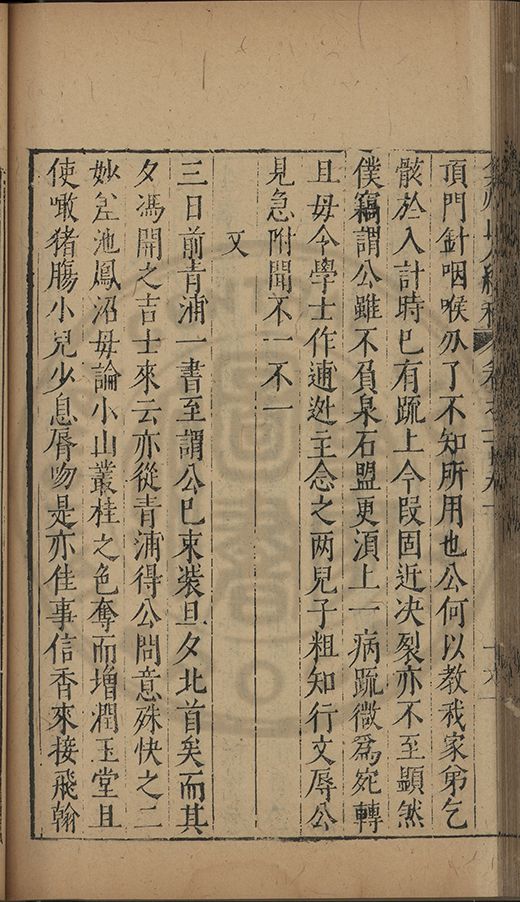 頂門針咽喉刅了不知所用也公何以教我家弟乞
骸於入計時巳有䟽上今叚固近决裂亦不至顯然
僕竊謂公雖不負泉石盟更湏上一病䟽微為宛轉
且毋令學士作逋逃主念之两兒子粗知行文辱公
見急附聞不一不一
又
三日前青浦一書至謂公巳束裝旦夕北首矣而其
夕馮開之吉士來云亦從青浦得公問意殊快之二
妙差池鳳沼毋論小山叢桂之色奪而增潤玉堂且
使噉猪膓小兒少息唇吻是亦佳事信香來接飛翰